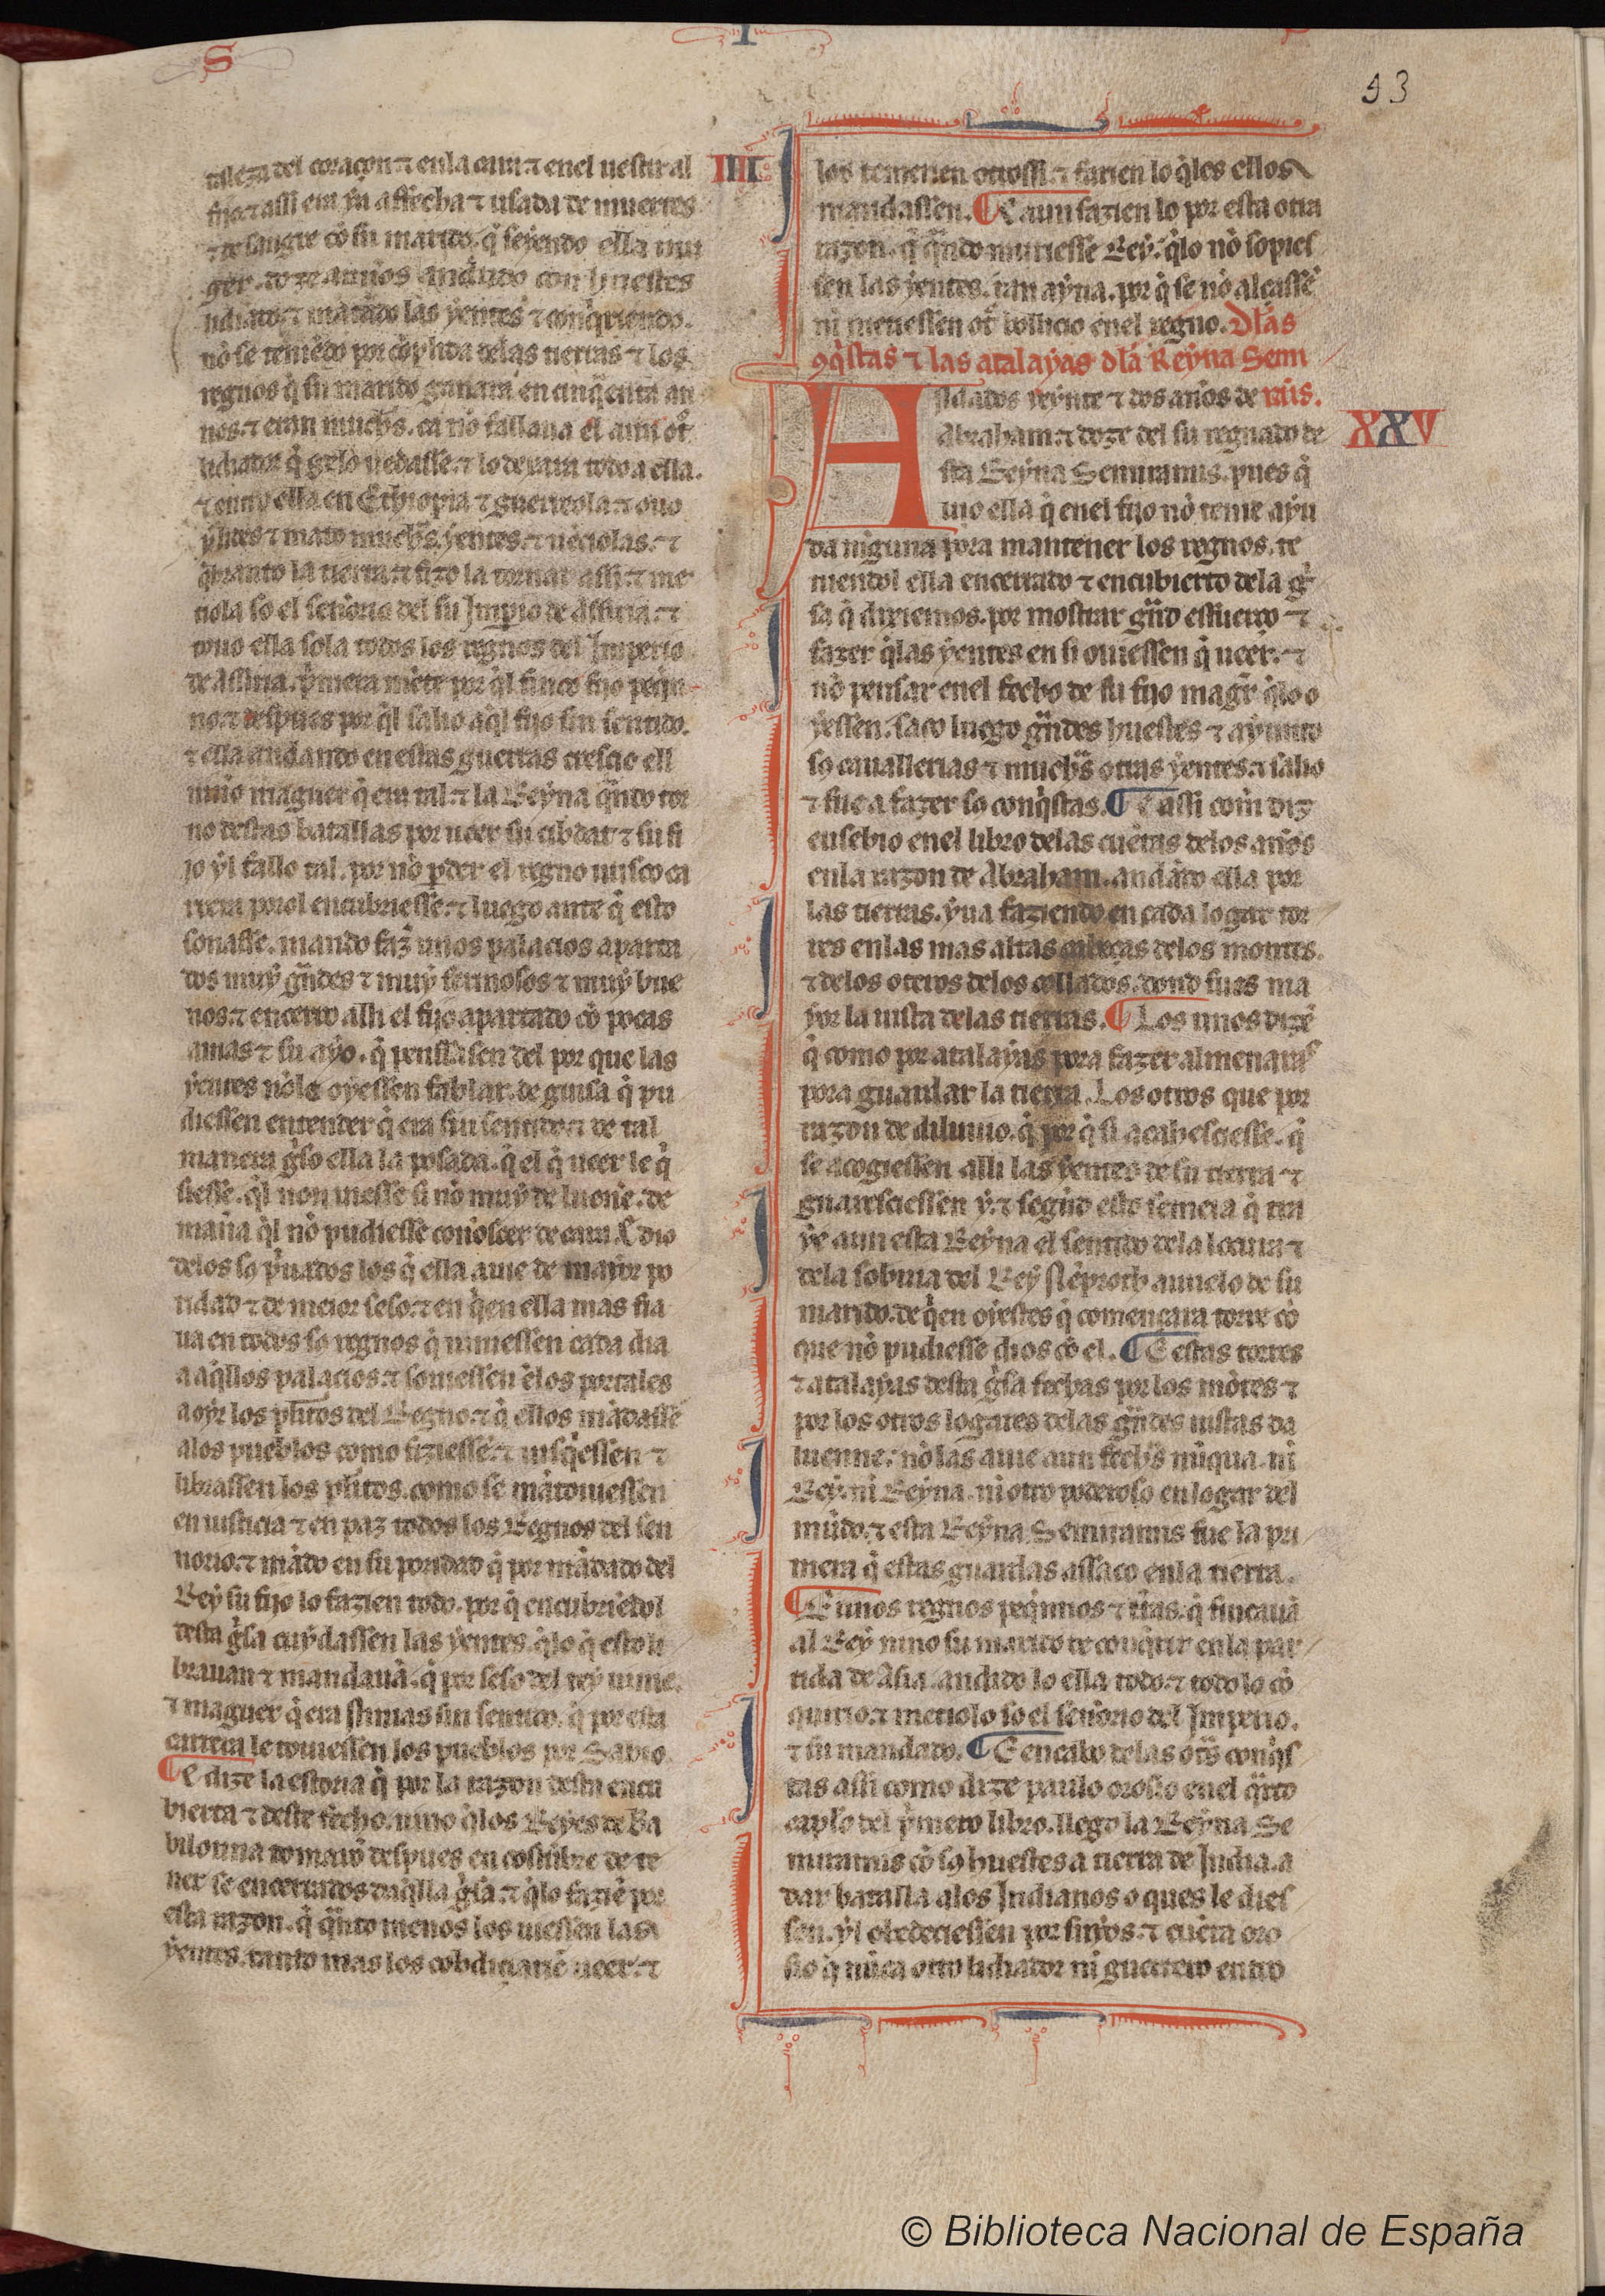 S
I
53
taleza del coraçon ⁊ en la cara ⁊ en el uestir al
fijo ⁊ assi era ya affecha ⁊ usada de muertes
⁊ de sangre cõ su marido. q̉ seyendo ella mu
ger. doze annos andudo con huestes
lidiãdo ⁊ matãdo las yentes ⁊ conq̉riendo.
nõ se teniẽdo por cõplida delas tierras ⁊ los
regnos q̉ su marido ganara en cinq̃enta an
nos. ⁊ eran muchos. ca nõ fallaua el aun ot̃
lidiador q̉ gelo uedasse. ⁊ lo dexara todo a ella.
⁊ entro ella en Ethiopia ⁊ guerreola. ⁊ ouo
y lides ⁊ mato muchas yentes. ⁊ uẽciolas. ⁊
q̃branto la tierra. ⁊ fizo la tornar assi. ⁊ me
tiola so el señorio del su Imꝑio de Assiria. ⁊
touo ella sola todos los regnos del Imperio
de Assiria. p̉mera mẽte por q̉l finco fijo peq̉n
no. ⁊ despues por q̉l salio aq̉l fijo sin sentido.
⁊ ella andando en estas guerras crescio ell
nino maguer q̉ era tal. ⁊ la Reyna q̃ndo tor
no destas batallas por ueer su cibdat ⁊ su fi
jo yl fallo tal. por nõ ꝑder el regno busco ca
rrera porol encubriesse. ⁊ luego ante q̉ esto
sonasse. mando faz̃ unos palacios aparta
dos muy gr̃ndes ⁊ muy fermosos ⁊ muy bue
nos. ⁊ encerro alli el fijo apartado cõ pocas
amas ⁊ su ayo. q̉ penssassen del por que las
yentes nõle oyessen fablar. de guisa q̉ pu
diessen entender q̉ era sin sentido. ⁊ de tal
manera g̉so ella la posada. q̉ el q̉ ueer le q̉
siesse. q̉l non uiesse si nõ muy de luene. de
mañа q̉l nõ pudiesse conoscer de cara. E dio
delos so p̉uados los q̉ ella auie de mayor po
ridad ⁊ de meior seso. ⁊ en q̉en ella mas fia
ua en todos so regnos q̉ uiniessen cada dia
a aq̉llos palacios. ⁊ souiessen ẽlos portales
a oyr los pleitos del Regno. ⁊ q̉ ellos mãdassẽ
alos pueblos como fiziessẽ. ⁊ uisq̉essen ⁊
librassen los pleitos. como se mãtouiessen
en iusticia ⁊ en paz todos los Regnos del sen
norio. ⁊ mãdo en su poridad q̉ por mãdado del
Rey su fijo lo fazien todo. por q̉ encubriẽdol
desta g̉sa cuydassen las yentes. q̉lo q̉ esto li
brauan ⁊ mandauã. q̉ por seso del rey uinie.
⁊ maguer q̉ era Ninias sin sentido. q̉ por esta
carrera le touiessen los pueblos por Sabio.
¶ E dize la estoria q̉ por la razon desta encu
bierta ⁊ deste fecho. uino q̉los Reyes de Ba
bilonna tomarõ despues en costũbre de te
ner se encerrados daq̉lla g̉sa. ⁊ q̉lo faziẽ por
esta razon. q̉ q̃nto menos los uiessen las
yentes. tanto mas los cobdiciariẽ ueer. ⁊
IIII
los temerien otrossi. ⁊ farien lo q̉les ellos
mandassen. ¶ E aun fazien lo por esta otra
razon. q̉ q̃ndo muriesse Rey. q̉lo nõ sopies
sen las yentes. tan ayna. por q̉ se nõ alçassẽ
ni mouessen ot̃ bollicio enel regno. Dlas
ↄq̉stas ⁊ las atalayas dla Reyna Semi
Andados veynte ⁊ dos años de rãis.
XXV
Abraham. ⁊ doze del su regnado de
sta Reyna Semiramis. pues q̉
uio ella q̉ enel fijo nõ tenie ayu
da niguna pora mantener los regnos. te
niendol ella encerrado ⁊ encubierto dela g̉
sa q̉ dixiemos. por mostrar grãd esfuerço ⁊
fazer q̉las yentes en si ouiessen q̉ ueer. ⁊
nõ pensar enel fecho de su fijo mager̃ q̉lo o
yessen. saco luego gr̃ndes huestes ⁊ ayunto
so cauallerias ⁊ muchas otras yentes. ⁊ salio
⁊ fue a fazer so conq̉stas. ¶ E assi com̃ diz
eusebio enel libro delas cuẽtas delos años
enla razon de Abraham. andãdo ella por
las tierras. yua faziendo en cada logar tor
res enlas mas altas cabeças delos montes.
⁊ delos oteros delos collados. dond fues ma
yor la uista delas tierras. ¶ Los unos dizẽ
q̉ como por atalayas pora fazer almenaras
pora guardar la tierra. Los otros que por
razon de diluuio. q̉ por q̉ si acahesciesse. q̉
se acogiessen alli las yentes de su tierra ⁊
guaresciessen y. ⁊ segũd esto semeia q̉ tra
ye aun esta Reyna el sentido dela locura ⁊
dela soberuia del Rey Nẽproth auuelo de su
marido. de q̉en oyestes q̉ començara torre cõ
que nõ pudiesse dios cõ el. ¶ E estas torres
⁊ atalayas desta g̉sa fechas por los mõtes ⁊
por los otros logares delas gr̃ndes uistas da
luenne. nõ las auie aun fechas nũqua. ni
Rey. ni Reyna. ni otro poderoso en logar del
mũdo. ⁊ esta Reyna Semiramis fue la pri
mera q̉ estas guardas assaco enla tierra.
¶ E unos regnos peq̉nnos ⁊ tr̃as. q̉ fincauã
al Rey nino su marido de conq̉rir enla par
tida de Asia. andido lo ella todo. ⁊ todo lo cõ
quirio. ⁊ metiolo so el señorio del Imperio.
⁊ su mandado. ¶ E en cabo delas otr̃s conq̉s
tas assi como dize paulo orosio enel q̃rto
capl̃o del p̉mero libro. llego la Reyna Se
miramis cõ so huestes a tierra de India. a
dar batalla alos Indianos o ques le dies
sen. yl obedeciessen por suyos. ⁊ cuẽta oro
sio q̉ nũca otro lidiador ni guerrero entro
© Biblioteca Nacional de España